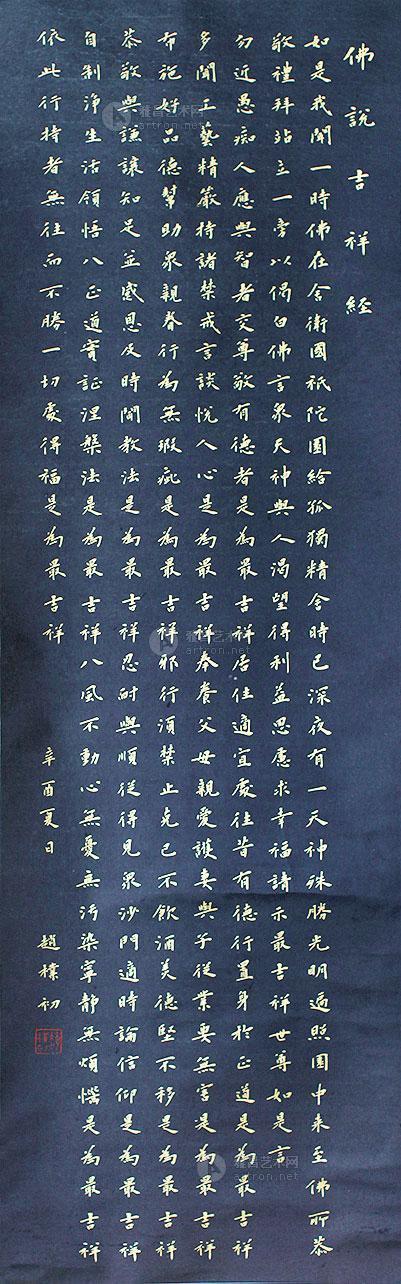 佛說吉祥経
如是我聞一時佛在舍衛國祇陀園給孤獨精舍時已深夜有一天神殊勝光明遍照園中来至佛所恭
敬禮拜站立一旁以偈白佛言眾天神與人渴望得利益思慮求幸福請示最吉祥世尊如是言
勿近愚痴人應與智者交尊敬有德者是為最吉祥居住適宜處往昔有德行置身於正道是為最吉祥
多聞工藝精嚴持諸禁戒言談悅人心是為最吉祥奉養父母親愛護妻與子從業要無害是為最吉祥
布施好品德幫助眾親眷行為無瑕疵是為最吉祥邪行須禁止克己不飲酒美德堅不移是為最吉祥
恭敬與謙讓知足並感恩及時聞教法是為最吉祥忍耐與順從得見眾沙門適時論信仰是為最吉祥
自制淨生活領悟八正道實証涅槃法是為最吉祥八風不動心無憂無污染寧靜無煩惱是為最吉祥
依此行持者無往而不勝一切處得福是為最吉祥
辛酉夏日 趙樸初
雅昌艺术网
artron.net
雅昌艺术网
artron.net
雅昌艺术网
artron.net
雅昌艺术网
artron.net